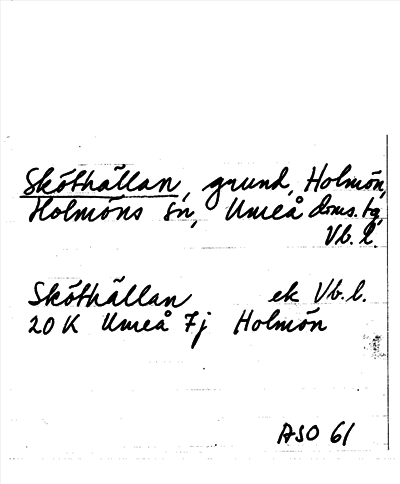 Skôthällan, grund, Holmön,
Holmöns sn, Umeå doms. tg,
Vb. l.
Skôthällan ek Vb. l.
20 K Umeå 7j Holmön
ASO 61